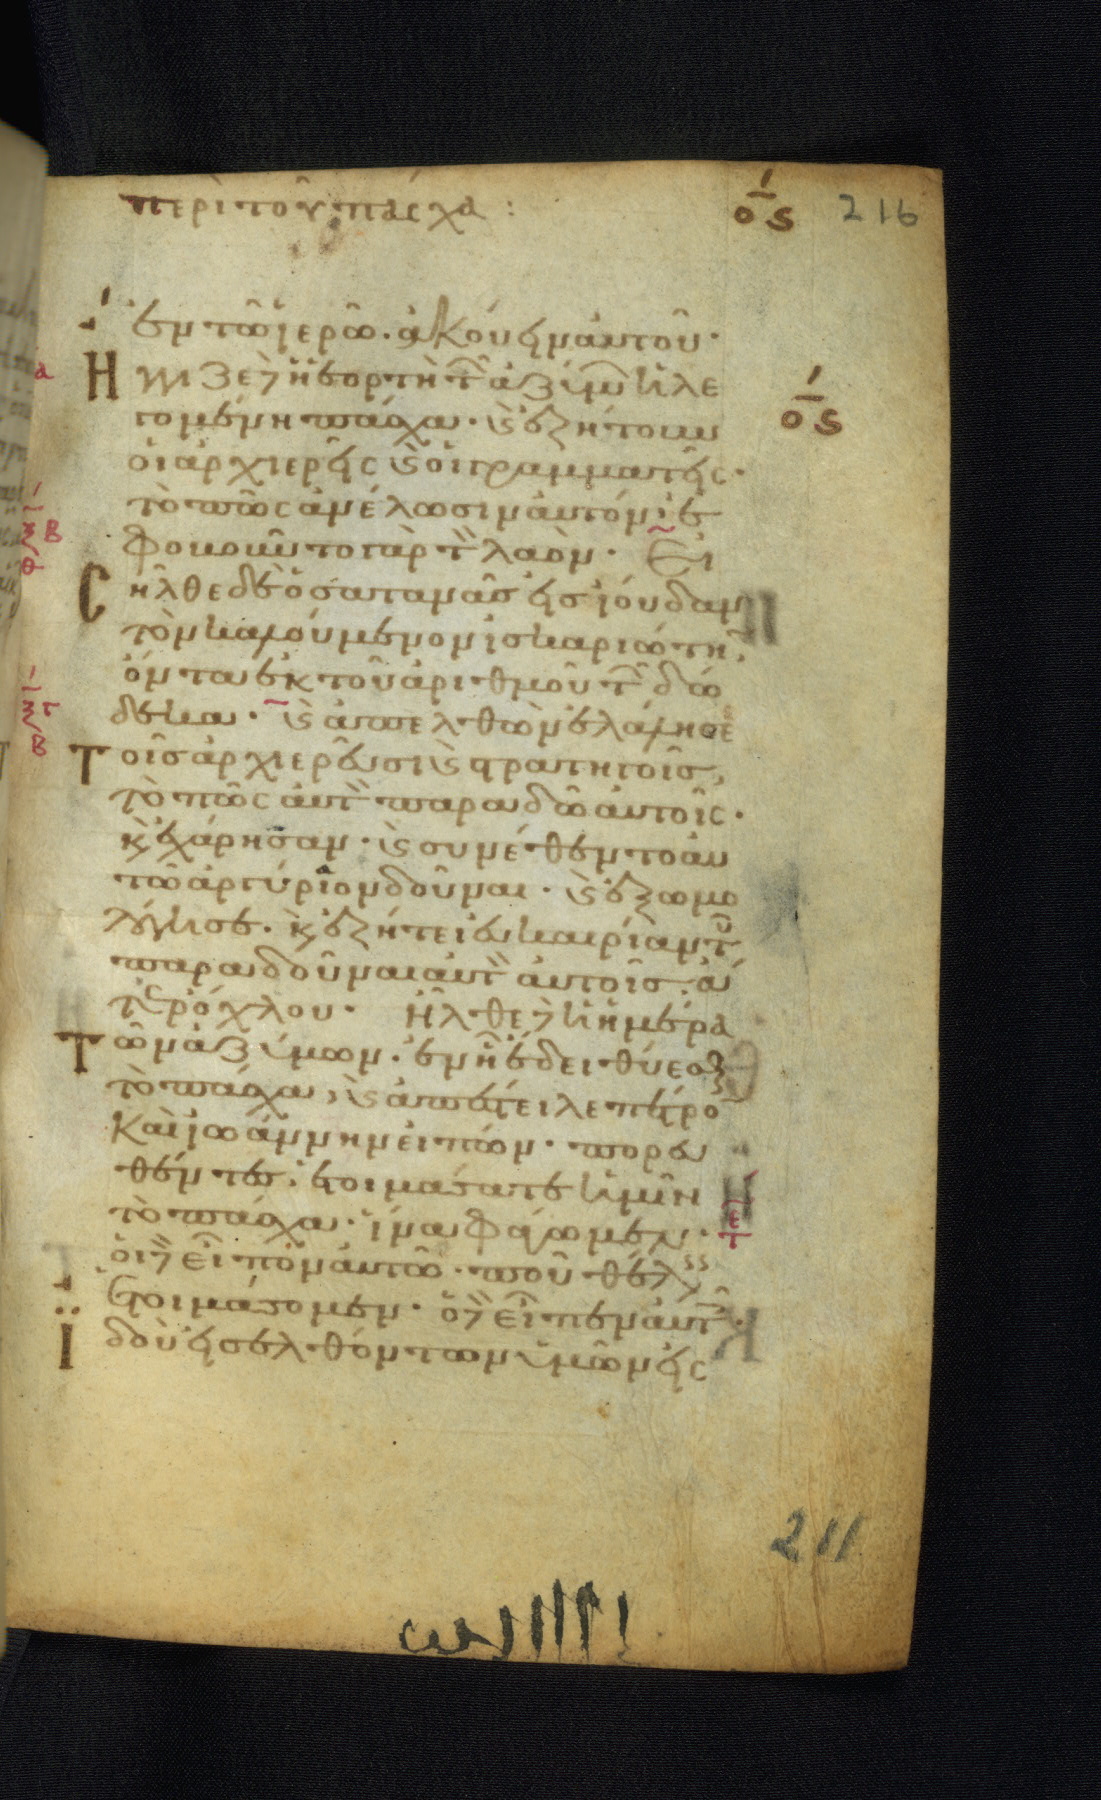 περὶ τοῦ πάσχα :
οϛ 216
ἐν τῶ ἱερῶ. ἀκούειν αὐτοῦ·
Ηγγιζε δὲ ἡ ἑορτὴ τῶν ἀζύμων ἡ λε
γομένη πάσχα· καὶ ἐζήτουν
οϛ
οἱ ἀρχιερεῖς καὶ οἱ γραμματεῖς·
τὸ πῶς ἀνέλωσιν αὐτόν· ἐ
φοβοῦντο γὰρ τὸν λαόν· Εἰ
σῆλθε δὲ ὁ σατανᾶς εἰς ἰούδαν
τὸν καλούμενον ἰσκαριώτην,
ὄντα ἐκ τοῦ ἀριθμοῦ τῶν δώ
δεκα· καὶ ἀπελθὼν ἐλάλησε
Τοῖς ἀρχιερεῦσι καὶ στρατηγοῖς,
τὸ πῶς αὐτὸν παραδῶ αὐτοῖς·
κὶ ἐχάρησαν· καὶ συνέθεντο αὐ
τῶ ἀργύριον δοῦναι· καὶ ἐξωμο
λόγησε. κὶ ἐζήτει εὐκαιρίαν τοῦ
παραδοῦναι αὐτὸν αὐτοῖς ἄ
τερ ὄχλου· Ηλθε δὲ ἡ ἡμέρα
Τῶν ἀζύμων. ἐν ἧ ἔδει θύεσθαι
τὸ πάσχα, καὶ ἀπέστειλε πέτρον
Καὶ ἰωάννην εἰπών· πορευ
θέντες ἑτοιμάσατε ἡμῖν
τὸ πάσχα· ἵνα φάγωμεν·
οἱ δὲ εἶπον αὐτῶ· ποῦ θέλεις
ἑτοιμάσομεν· ὁ δὲ εἶπεν αὐτοῖς·
Ϊδοὺ εἰσελθόντων ὑμῶν εἰς
211